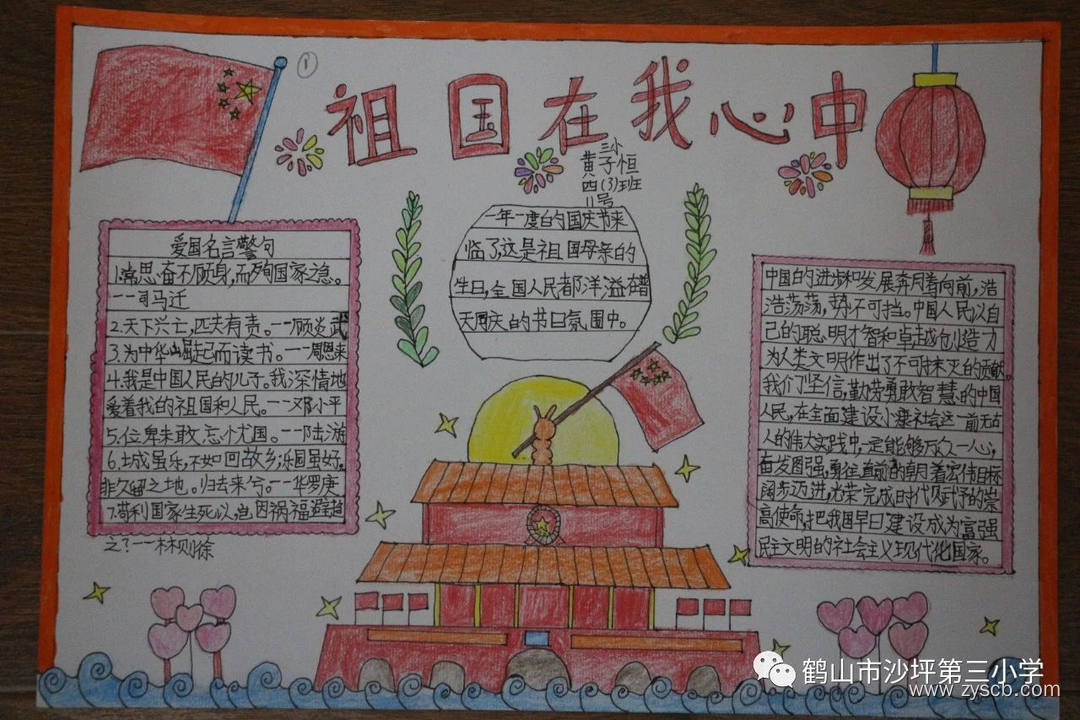 ①
祖国在我心中
三小
黄子恒
四(3)班
11号
爱国名言警句
1.常思奋不顾身,而殉国家之急。
——司马迁
2.天下兴亡,匹夫有责。——顾炎武
3.为中华崛起而读书。——周恩来
4.我是中国人民的儿子。我深情地
爱着我的祖国和人民。——邓小平
5.位卑未敢忘忧国。——陆游
6.土成虽乐,不如回故乡;乐园虽好,
非久留之地。归去来兮。——华罗庚
7.苟利国家生死以,岂因祸福避趋
之?——林则徐
一年一度的国庆节来
临了,这是祖国母亲的
生日,全国人民都洋溢在普
天同庆的节日氛围中。
中国的进步和发展奔月着向前,浩
浩荡荡,势不可挡。中国人民以自
己的聪明才智和卓越创造力
为人类文明作出了不可磨灭的贡献。
我们坚信,勤劳勇敢智慧的中国
人民,在全面建设小康社会这一前无古
人的伟大实践中,一定能够万众一心,
奋发图强,勇往直前,朝着宏伟目标
阔步迈进,光荣完成时代赋予的崇
高使命,把我国早日建设成为富强
民主文明的社会主义现代化国家。
鹤山市沙坪第三小学
www.zyscb.com